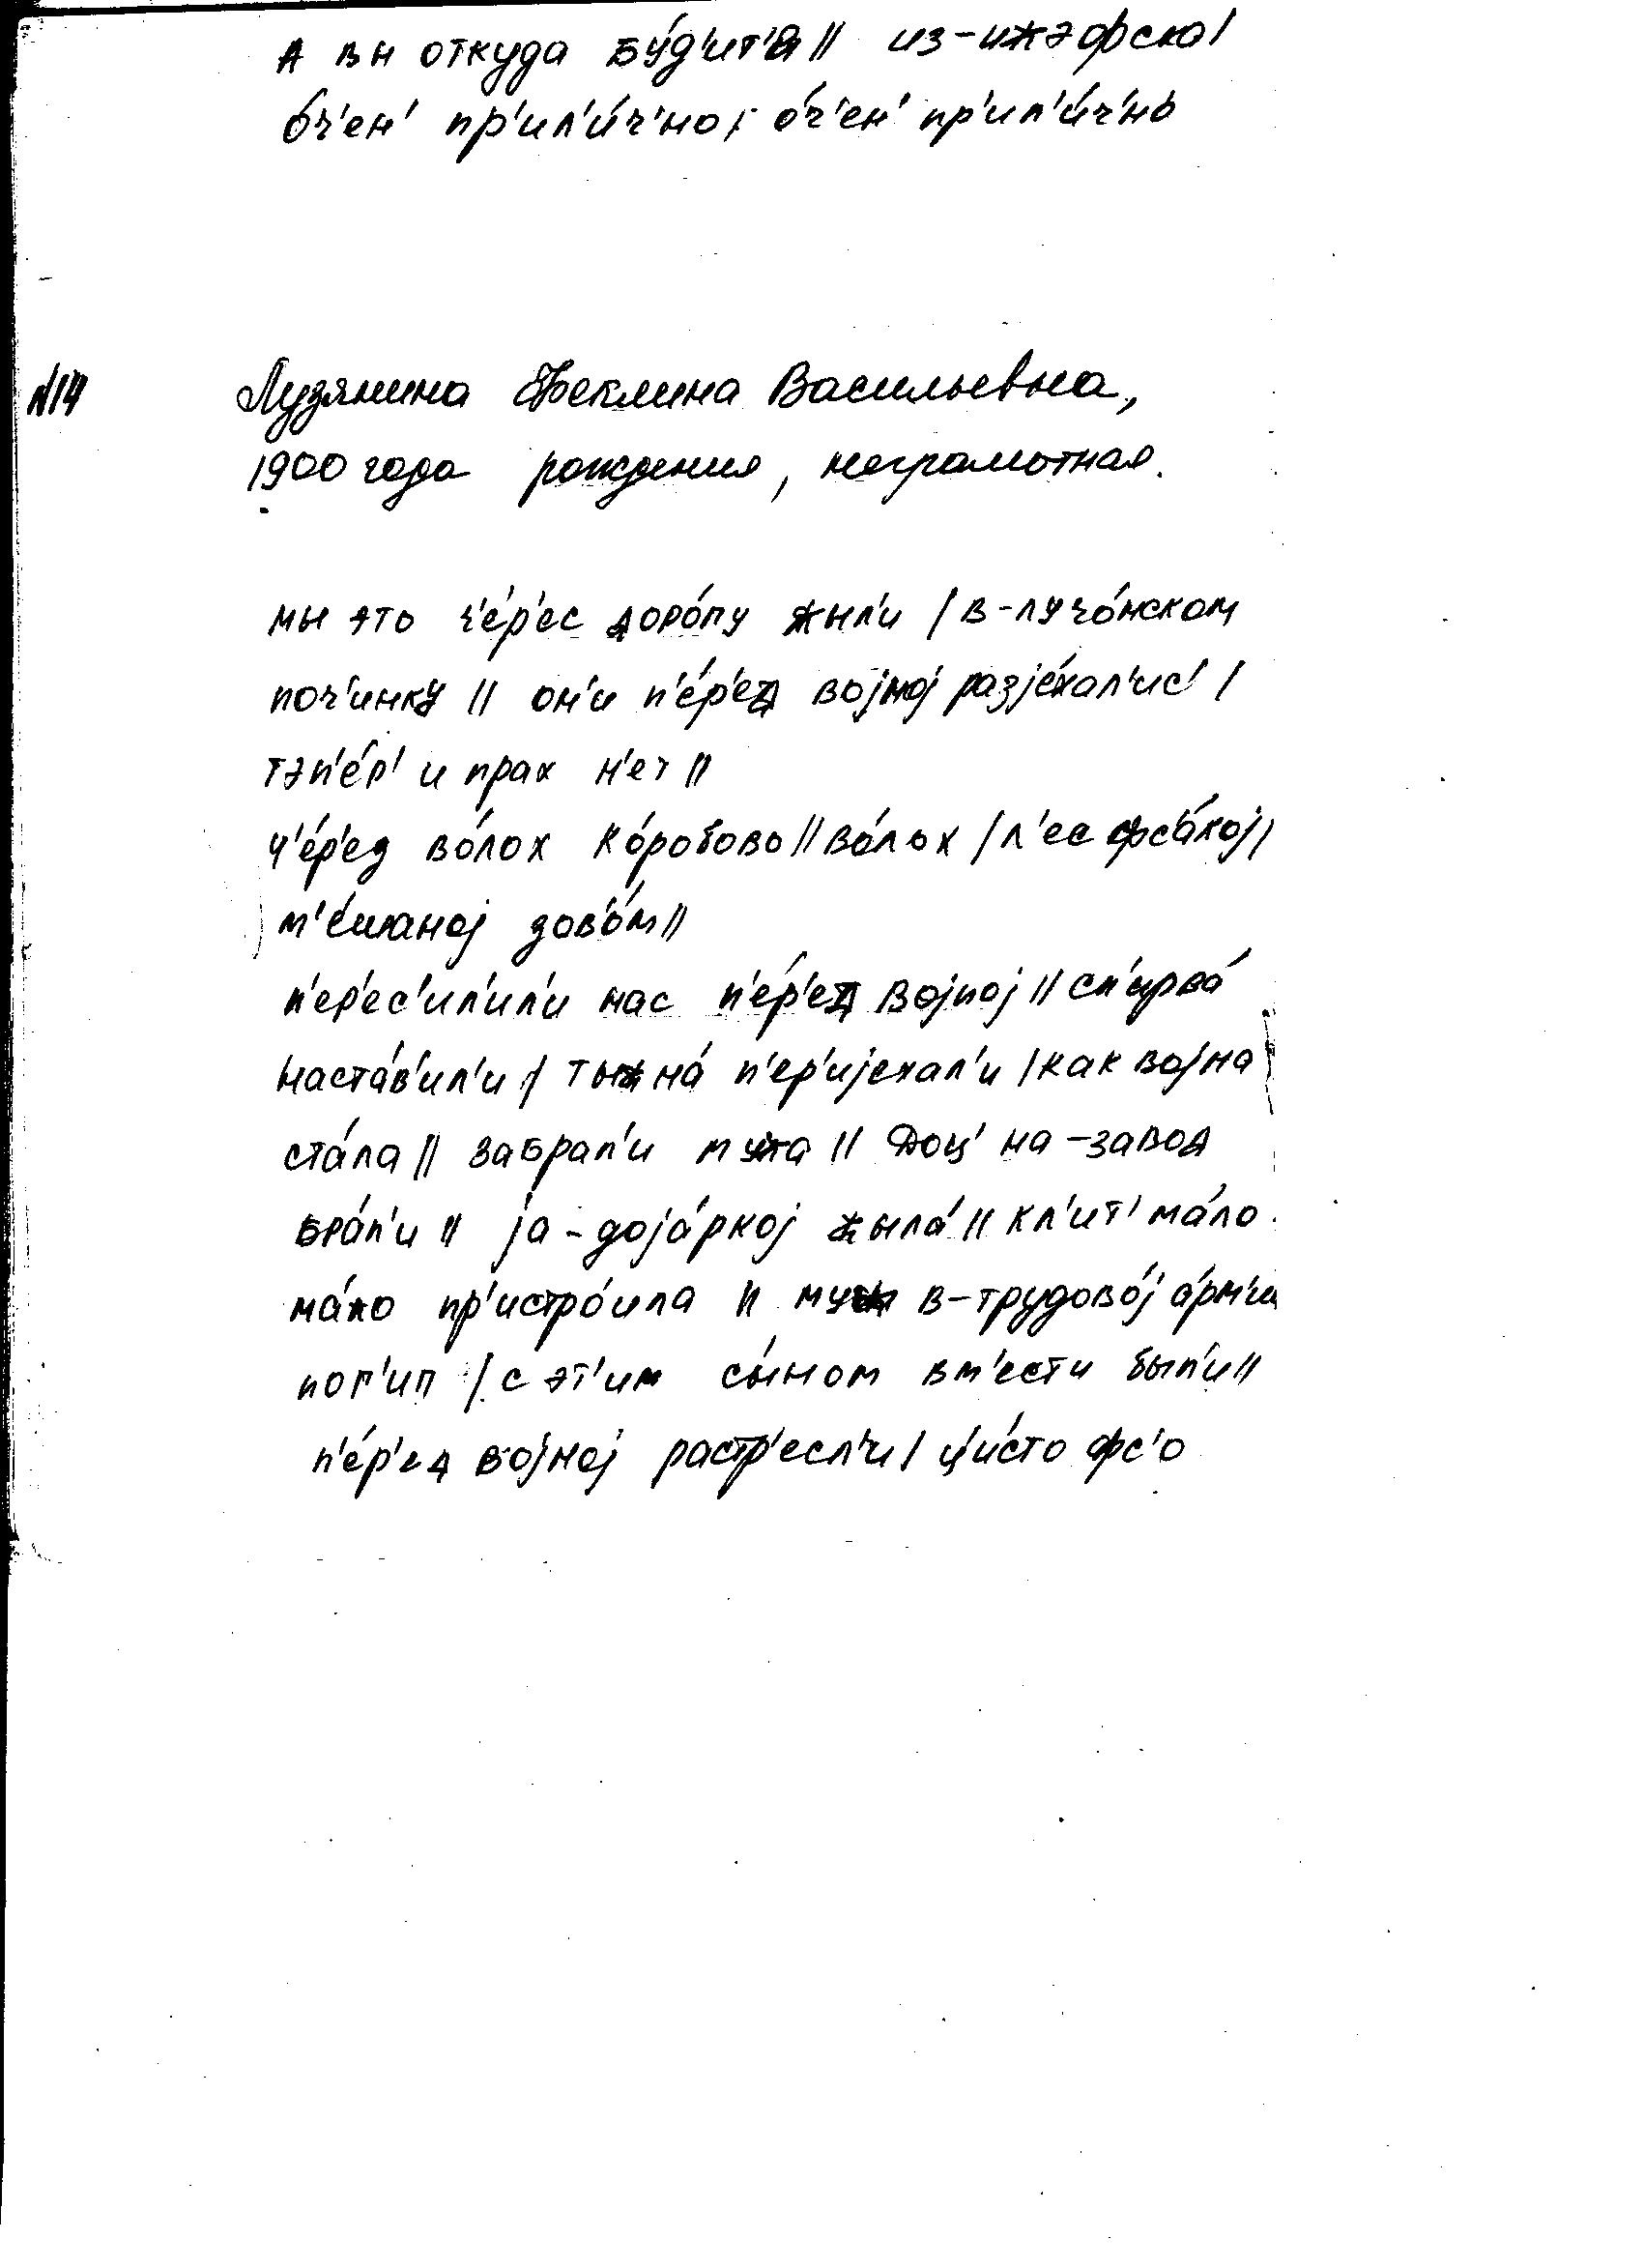 А вы откуда бу́д'ит'э // из-ижэфско/
о́ч'ен' пр'ил'и́ч'но/ о́ч'ен' пр'ил'и́ч'но
N14
Лузянина Феклина Васильевна,
1900 года рождения, неграмотная.
мы это ч'е́р'ес доро́гу жыл'и / в-лучо́нском
поч'инку // он'и п'е́р'ед војној разје́хал'ис' /
тэп'е́р' и прах н'ет //
ч'е́р'ед во́лох ко́робово // во́лох / л'ес фс'а́кој /
м'е́шаној зов'о́м //
п'ер'ес'ил'ил'и нас п'е́р'ед војној // сп'ирва́
наста́в'ил'и / тыжна́ п'ер'ијехал'и / как војна
ста́ла // забрал'и мужа // Доц' на-завод
бра́л'и // ја-доја́ркој жыла́ // кл'ит' ма́ло
ма́ло пр'истро́ила // муж в-трудово́ј а́рм'ии
пог'ип / с эт'им сы́ном вм'ести был'и //
п'е́р'ед војној растр'есл'и / ц'и́сто фс'о